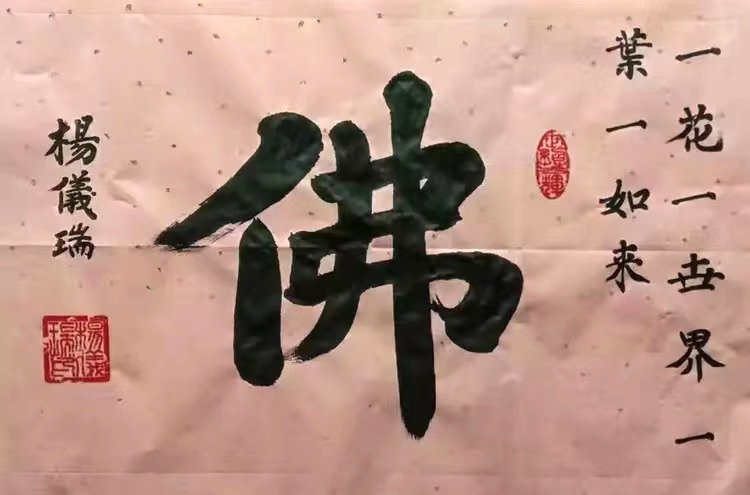 一花一世界一
葉一如来
佛
楊儀瑞